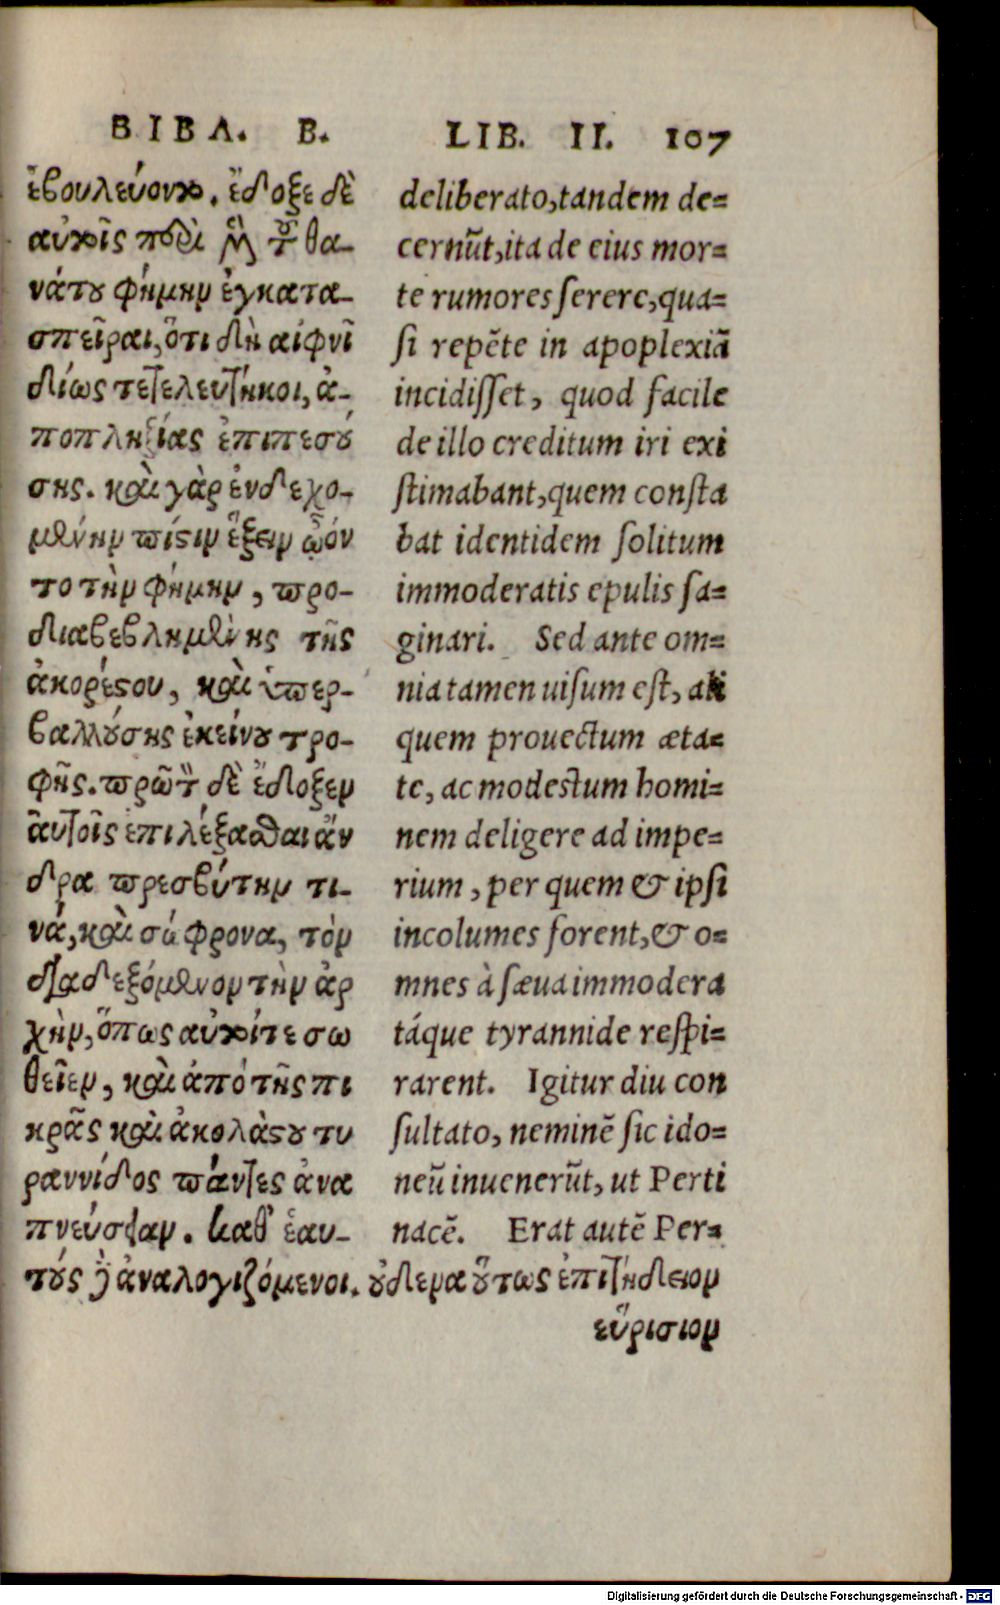 ΒΙΒΛ. Β.
ἐβουλεύοντο. ἔδοξε δὲ
αὐτοῖς περὶ μὲν τοῦ θα-
νάτου φήμην ἐγκατα-
σπεῖραι, ὅτι δὴ αἰφνι
δίως τετελευτήκοι, ἀ-
ποπληξίας ἐπιπεσού
σης. καὶ γὰρ ἐνδεχο-
μένην πίστιν ἕξειν ᾤον
το τὴν φήμην, προ-
διαβεβλημένης τῆς
ἀκορέστου, καὶ ὑπερ-
βαλλούσης ἐκείνου τρο-
φῆς. πρῶτον δὲ ἔδοξεν
αὐτοῖς ἐπιλέξασθαι ἄν
δρα πρεσβύτην τι-
νά, καὶ σώφρονα, τὸν
διαδεξόμενον τὴν ἀρ
χὴν, ὅπως αὐτοί τε σω
θεῖεν, καὶ ἀπὸ τῆς πι
κρᾶς καὶ ἀκολάστου τυ
ραννίδος πάντες ἀνα
πνεύσειαν. καθ' ἑαυ-
τοὺς δὲ ἀναλογιζόμενοι. οὐδένα οὕτως ἐπιτήδειον
εὕρισκον
LIB. II. 107
deliberato, tandem de=
cernũt, ita de eius mor=
te rumores serere, qua=
si repẽte in apoplexiã
incidisset, quod facile
de illo creditum iri exi
stimabant, quem consta
bat identidem solitum
immoderatis epulis sa=
ginari. Sed ante om=
nia tamen uisum est, ali
quem prouectum æta=
te, ac modestum homi=
nem deligere ad impe=
rium, per quem & ipsi
incolumes forent, & o=
mnes à sæua immodera
táque tyrannide respi=
rarent. Igitur diu con
sultato, neminẽ sic ido=
neũ inuenerũt, ut Perti
nacẽ. Erat autẽ Per=
Digitalisierung gefördert durch die Deutsche Forschungsgemeinschaft - DFG